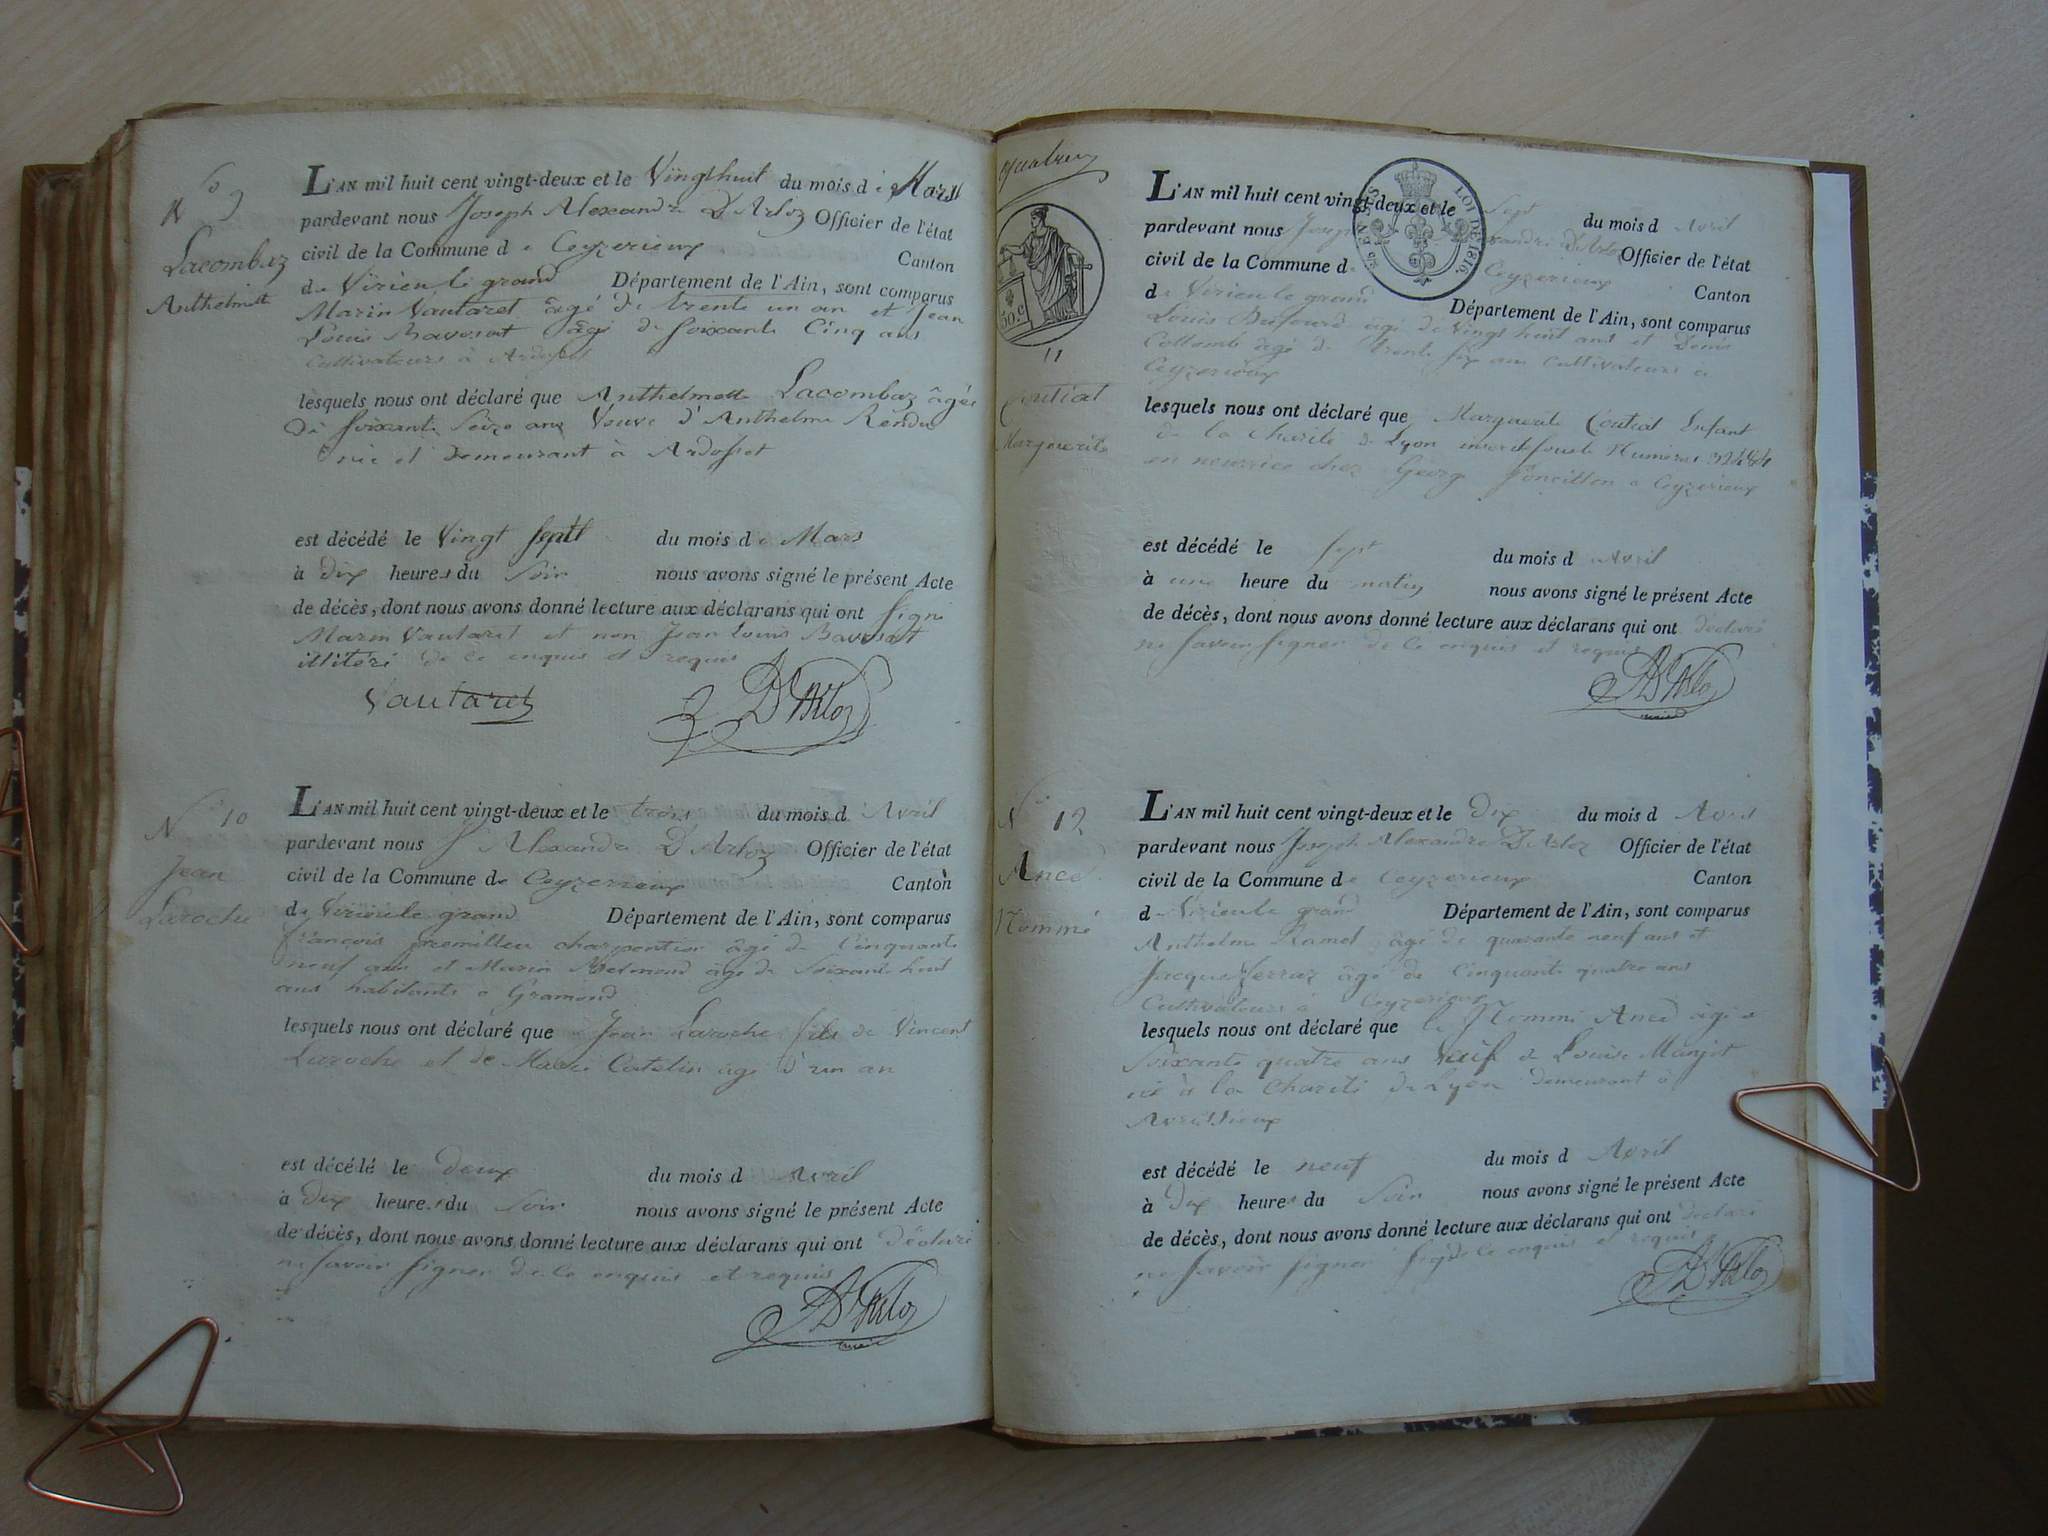 No 9
Lacombaz
Anthelmette
L'AN mil huit cent vingt-deux et le Vingthuit du mois de Mars
pardevant nous Joseph Alexandre D'Arloz Officier de l'état
civil de la Commune de Ceyzerieux Canton
de Virieu le grand Département de l'Ain, sont comparus
Marin Vautaret âgé de trente un an et Jean
Louis Bavosat âgé de soixante Cinq ans
Cultivateurs à Ardosset
lesquels nous ont déclaré que Anthelmette Lacombaz âgée
De soixante Seize ans Veuve d'Anthelme Rendu
née et Demeurant à Ardosset
est décédé le Vingt sept du mois de Mars
à Dix heures du Soir nous avons signé le présent Acte
de décès, dont nous avons donné lecture aux déclarans qui ont signé
Marin Vautaret et non Jean Louis Bavosat
illitéré de ce enquis et requis
Vautaret D'Arloz
No 10
Jean
Laroche
L'AN mil huit cent vingt-deux et le trois du mois d Avril
pardevant nous J Alexandre D'Arloz Officier de l'état
civil de la Commune de Ceyzerieux Canton
de Virieu le grand Département de l'Ain, sont comparus
françois premilleu charpentier âgé de Cinquante
neuf ans et Marin âgé de Soixante huit
ans habitants a Gramond
lesquels nous ont déclaré que Jean Laroche fils de Vincent
Laroche et de Marie Catelin âgé d'un an
est décédé le Deux du mois d Avril
à Dix heures du Soir nous avons signé le présent Acte
de décès, dont nous avons donné lecture aux déclarans qui ont Déclaré
ne savoir signer de ce enquis et requis
D'Arloz
maire
quatre
50.c
EN SUS
LOI DE 1816.
11
Coutiat
Marguerite
L'AN mil huit cent vingt-deux et le Sept du mois d Avril
pardevant nous Joseph Alexandre D'Arloz Officier de l'état
civil de la Commune d Ceyzerieux Canton
de Virieu le grand Département de l'Ain, sont comparus
Louis âgé de Vingt huit ans et Denis
Collomb âgé de trente six ans cultivateurs a
Ceyzerieux
lesquels nous ont déclaré que Marguerite Coutiat Enfant
de la Charité de Lyon sous le Numéros
en nourrice chez George Poncillon a Ceyzerieux
est décédé le sept du mois d Avril
à une heure du matin nous avons signé le présent Acte
de décès, dont nous avons donné lecture aux déclarans qui ont déclaré
ne savoir signer de ce enquis et requis
D'Arloz
maire
No 12
Ancé
Nommé
L'AN mil huit cent vingt-deux et le Dix du mois d Avril
pardevant nous Joseph Alexandre D'Arloz Officier de l'état
civil de la Commune de Ceyzerieux Canton
de Virieu le grand Département de l'Ain, sont comparus
Anthelme Ramel âgé de quarante neuf ans et
Jacques Ferraz âgé de Cinquante quatre ans
Cultivateurs à Ceyzerieux
lesquels nous ont déclaré que le Nommé Ancé âgé de
soixante quatre ans Veuf de Louise Manjot
né à la Charité de Lyon demeurant à
Avrissieux
est décédé le neuf du mois d Avril
à Dix heures du Soir nous avons signé le présent Acte
de décès, dont nous avons donné lecture aux déclarans qui ont déclaré
ne savoir signer de ce enquis et requis
D'Arloz